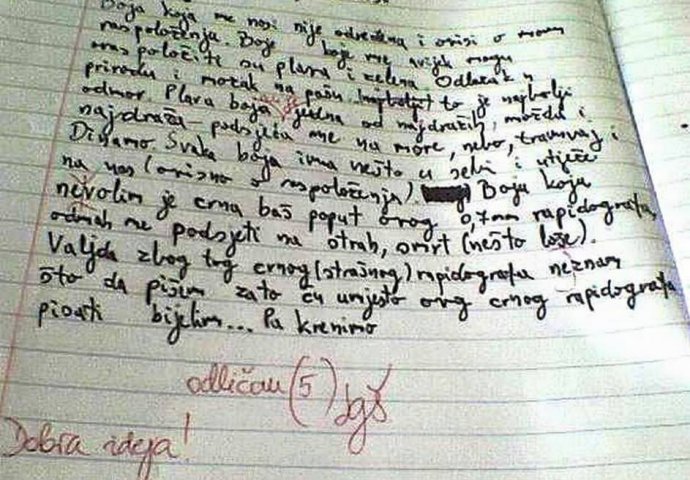 Boja koja me nosi nije određena i ovisi o mom
raspoloženju. Boje boje me uvijek mogu
oraspoložiti su plava i zelena. Odlazak u
prirodu i mozak na pašu (najbolje) to je najbolji
odmor. Plava boja je jedna od najdražih, možda i
najdraža – podsjeća me na more, nebo, tramvaj i
Dinamo. Svaka boja ima nešto u sebi i utječe
na nas (ovisno o raspoloženju). Boja koju
nevolim je crna baš poput ovog 0,7mm rapidografa,
odmah me podsjeti na strah, smrt (nešto loše).
Valjda zbog tog crnog (strašnog) rapidografa neznam
što da pišem zato ću umjesto ovog crnog rapidografa
pisati bijelim... Pa krenimo
odličan (5)
Dobra ideja!